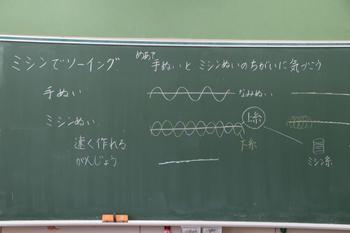 ミシンでソーイング
めあて
手ぬいと ミシンぬいのちがいに気づこう
手ぬい
なみぬい
ミシンぬい
上糸
速く作れる
がんじょう
下糸
ミシン糸